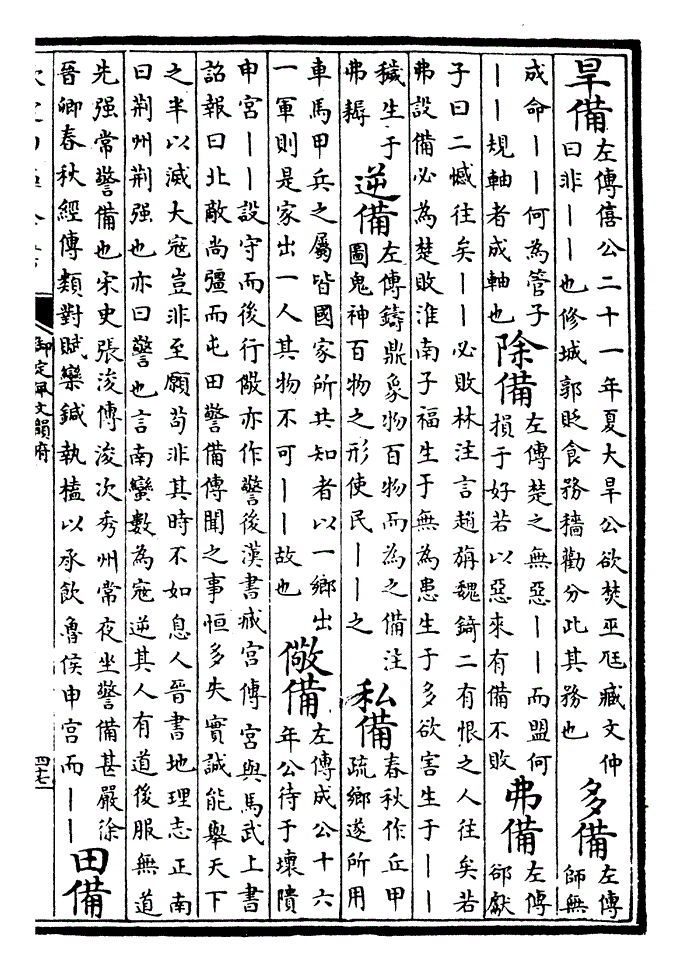 旱備
左傳僖公二十一年夏大旱公欲焚巫尫臧文仲
曰非丨丨也修城郭貶食務穡勸分此其務也
多備
左傳
師無
成命丨丨何為管子
丨丨規軸者成軸也
除備
左傳楚之無惡丨丨而盟何
損于好若以惡來有備不敗
弗備
左傳
郤獻
子曰二憾往矣丨丨必敗林注言趙旃魏錡二有恨之人往矣若
弗設備必為楚敗淮南子福生于無為患生于多欲害生于丨丨
穢生于
弗耨
逆備
左傳鑄鼎象物百物而為之備注
圖鬼神百物之形使民丨丨之
私備
春秋作丘甲
疏鄉遂所用
車馬甲兵之屬皆國家所共知者以一鄉出
一軍則是家出一人其物不可丨丨故也
儆備
左傳成公十六
年公待于壞隤
申宮丨丨設守而後行儆亦作警後漢書臧宮傳宮與馬武上書
詔報曰北敵尚彊而屯田警備傳聞之事恒多失實誠能舉天下
之半以滅大寇豈非至願茍非其時不如息人晉書地理志正南
曰荆州荆强也亦曰警也言南蠻數為寇逆其人有道後服無道
先强常警備也宋史張浚傳浚次秀州常夜坐警備甚嚴徐
晉卿春秋經傳類對賦欒鍼執榼以承飲魯侯申宮而丨丨
田備
御定佩文韻府
四七